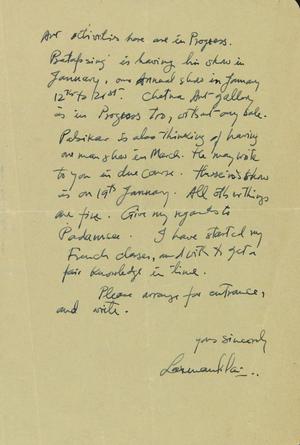 Art activities here are in Progress.
is having his show in
January, our Annual show in January
12th to 21st. Chetna Art gallery
is in Progress too, without any sale.
Palsikar is also thinking of having
one man show in March. He may write
to you in due course. show
is on 19th January. All other things
are fine. Give my regards to
Padamsee. I have started my
French classes, and wish to get a
fair knowledge in time.
Please arrange for entrance,
and write.
yours sincerely
Laxman Pai..